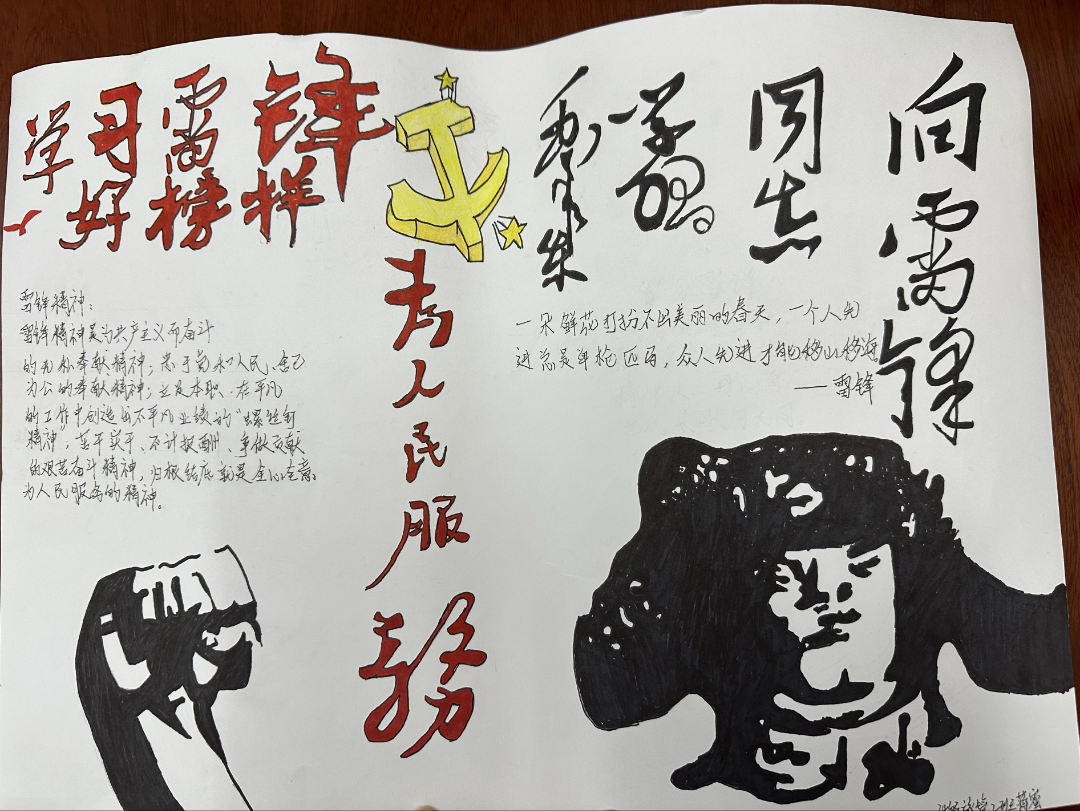 学习雷锋
好榜样
为人民服务
向雷锋
同志
学习
毛泽东
雷锋精神：
雷锋精神是为共产主义而奋斗
的无私奉献精神；忠于党和人民、舍己
为公的奉献精神；立足本职、在平凡
的工作中创造出不平凡业绩的“螺丝钉
精神”，苦干实干、不计报酬、争做贡献
的艰苦奋斗精神，归根结底就是全心全意
为人民服务的精神。
一朵鲜花打扮不出美丽的春天，一个人先
进总是单枪匹马，众人先进才能移山移海
——雷锋